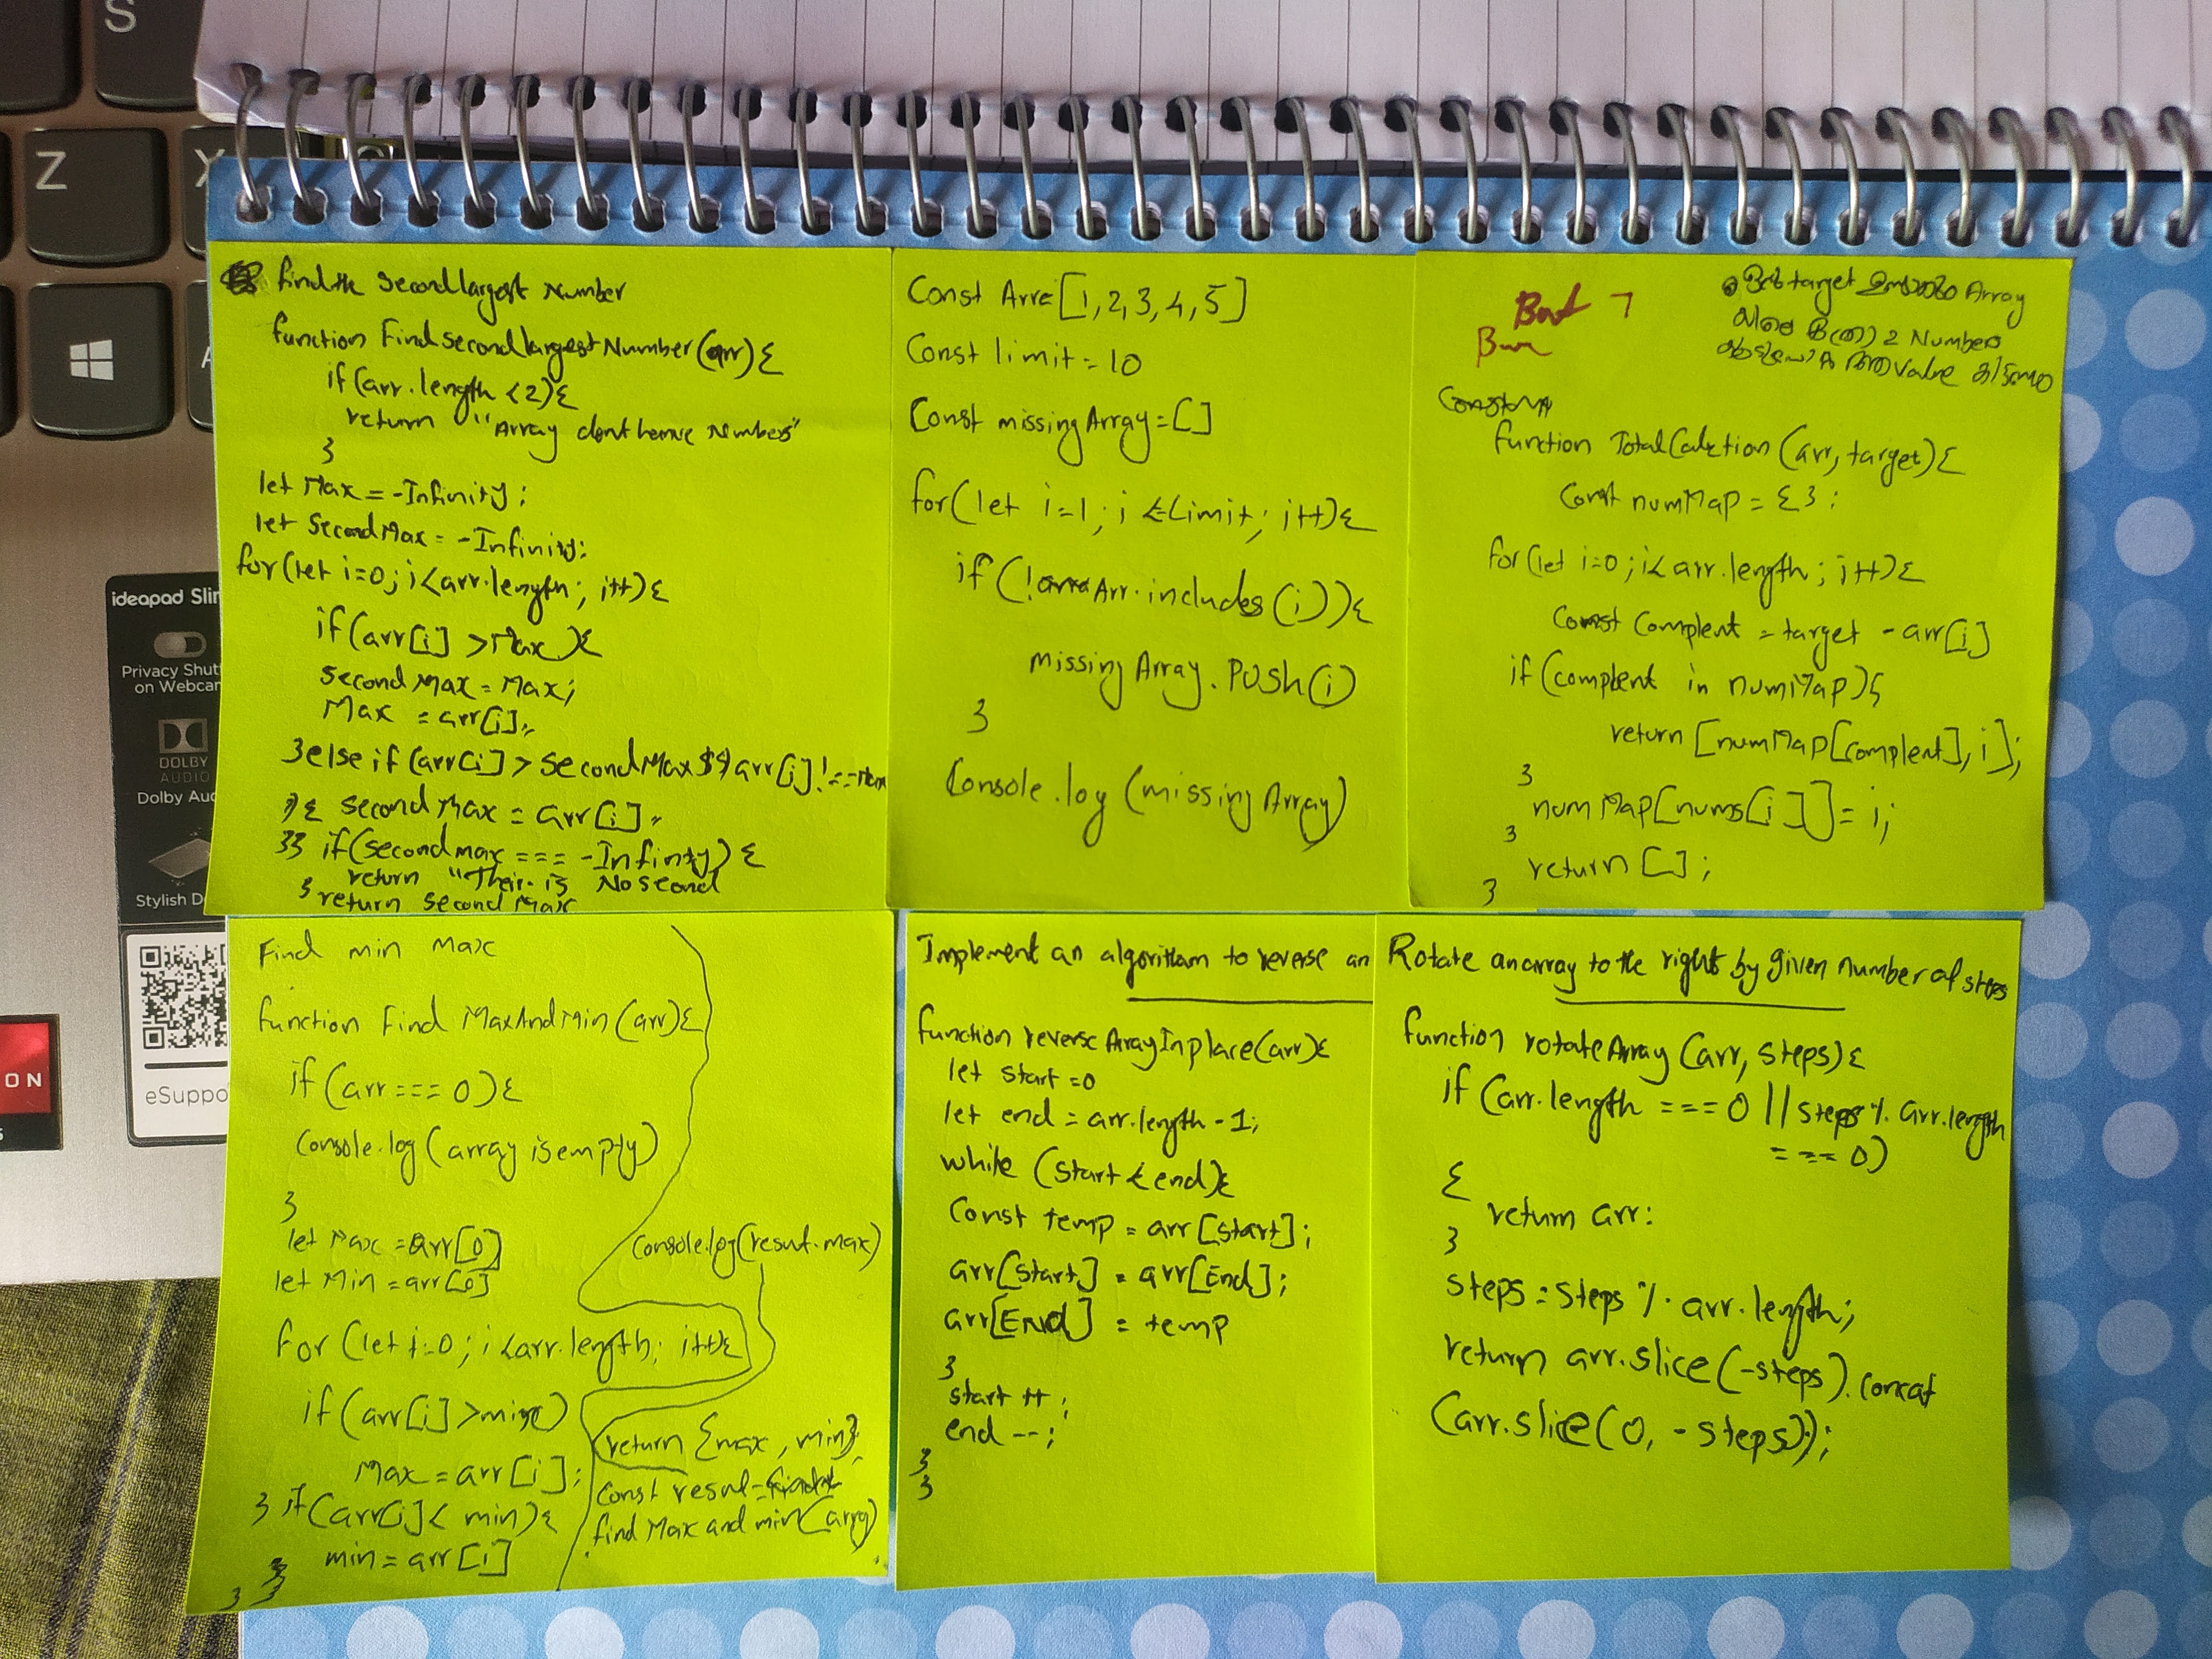 S
Z
X
ideapad Slim
Privacy Shutt
on Webcam
DOLBY
AUDIO
Dolby Aud
Stylish D
eSuppo
ON
Find the Second largest Number
function FindSecondlargestNumber(arr){
if(arr.length <2){
return "Array dont have Numbers"
}
let Max = -Infinity;
let SecondMax = -Infinity;
for(let i=0; i<arr.length; i++){
if(arr[i] >Max){
second Max = Max;
Max = arr[i];
}else if(arr[i] > secondMax $$ arr[i] !== Max
){ second Max = arr[i];
}} if(second max === -Infinty) {
return "Their is No second
} return second Max
Const Arr=[1,2,3,4,5]
Const limit = 10
Const missingArray = []
for(let i=1; i <=Limit; i++){
if(!Arr.includes(i)){
missing Array.PUSH(i)
}
Console.log(missing Array)
target Array
2 Numbers
value
function TotalCalction (arr, target){
Const numMap = {};
for(let i=0; i< arr.length; i++){
Const Complent = target - arr[i]
if(complent in numMap){
return [numMap[complent], i];
}
numMap[nums[i]] = i;
}
return [];
}
Find min max
function Find MaxAndMin(arr){
if(arr === 0){
Console.log(array is empty)
}
let Max = arr[0]
let Min = arr[0]
for(let i=0; i<arr.length; i++){
if(arr[i] > )
Max = arr[i];
} if(arr[i] < min){
min = arr[i]
}
}
}
Console.log(result.max)
return {max, min}
Const resul =
find Max and min(arra)
Implement an algorithm to reverse an
function reverse ArrayInplace(arr){
let start =0
let end = arr.length - 1;
while (start < end){
Const temp = arr[start];
arr[start] = arr[End];
arr[End] = temp
}
start ++;
end --;
}
}
Rotate an array to the right by given number of steps
function rotateArray (arr, steps){
if (arr.length === 0 || steps % arr.length
=== 0)
{
return arr:
}
steps = steps % arr.length;
return arr.slice(-steps).concat
(arr.slice(0, -steps));